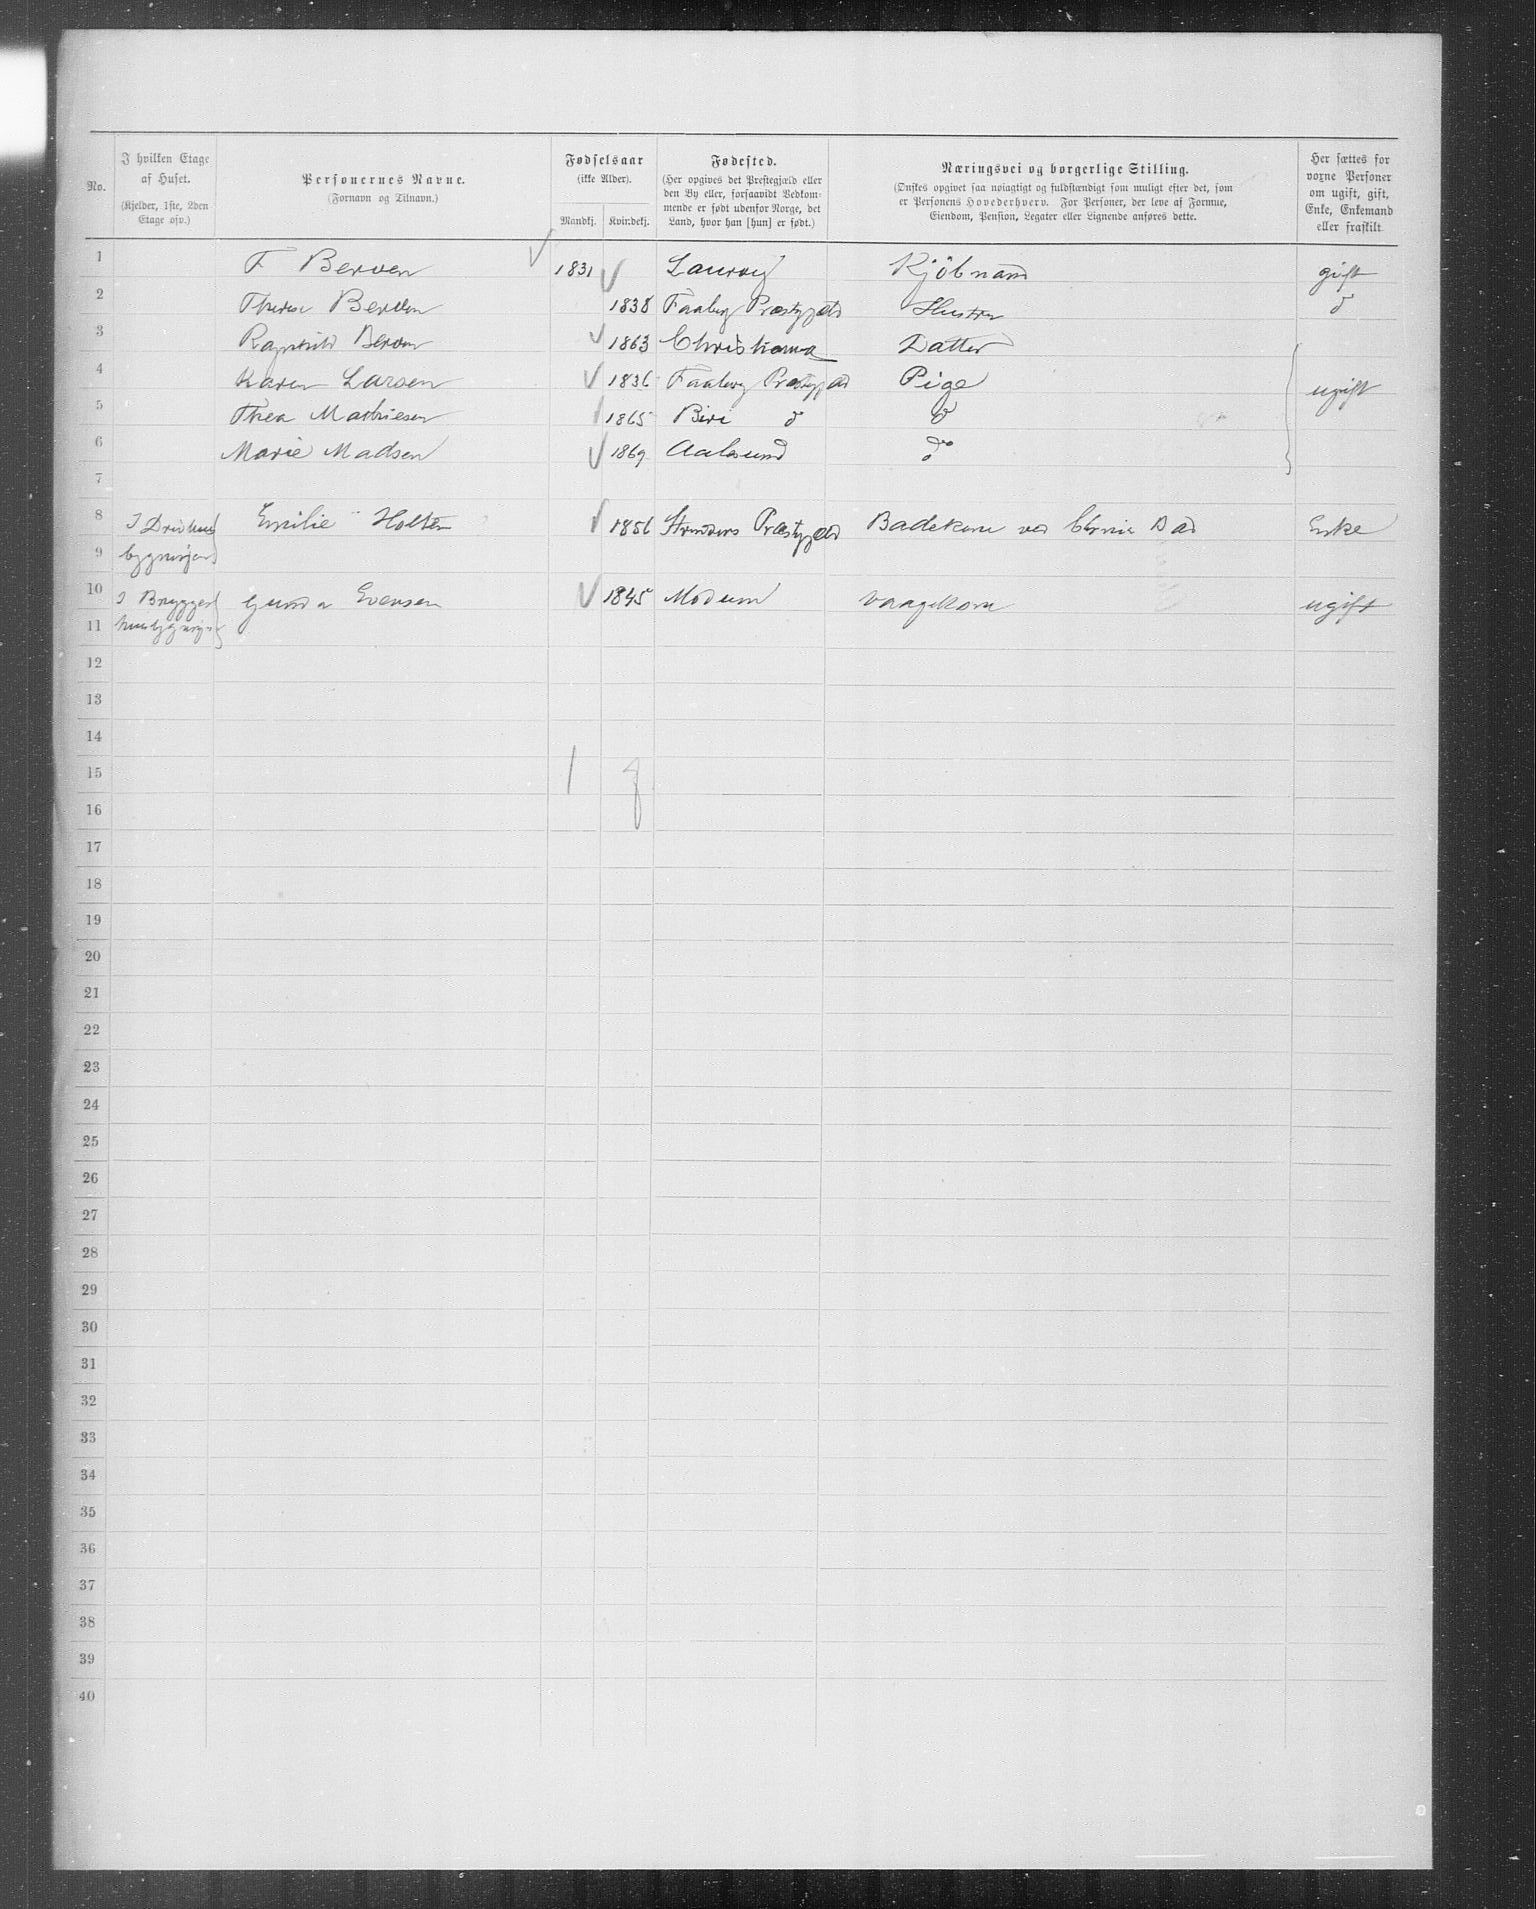 No.
I hvilken Etage af Huset.
(Kjelder, 1ste, 2den Etage osv.)
Personernes Navne.
(Fornavn og Tilnavn.)
Fødselsaar
(ikke Alder).
Mandkj. Kvindekj.
Fødested.
(Her opgives det Prestegjæld eller
den By eller, forsaavidt Vedkom-
mende er født udenfor Norge, det
Land, hvor han [hun] er født.)
Næringsvei og borgerlige Stilling.
(Ønskes opgivet saa nøiagtigt og fuldstændigt som muligt efter det, som
er Personens Hovederhverv. For Personer, der leve af Formue,
Eiendom, Pension, Legater eller Lignende anføres dette.
Her sættes for
voxne Personer
om ugift, gift,
Enke, Enkemand
eller fraskilt.
1 F Berven 1831 Laurvig Kjøbmand gift
2 Therese Berven 1838 Faaberg Præstegjæld Hustru do
3 Ragnhild Berven 1863 Christiania Datter
4 Karen Larsen 1836 Faaberg Præstegjæld Pige ugift
5 Thea Mathiesen 1865 Biri do do
6 Marie Madsen 1869 Aalesund do
7
8 I Drivhus Emilie Holten 1856 Præstegjæld Badekone ved Bad Enke
9 bygningen
10 I Bryggers Gunda Evensen 1845 Modum Vaagekone ugift
11 husbygningen
12
13
14
15 1 8
16
17
18
19
20
21
22
23
24
25
26
27
28
29
30
31
32
33
34
35
36
37
38
39
40